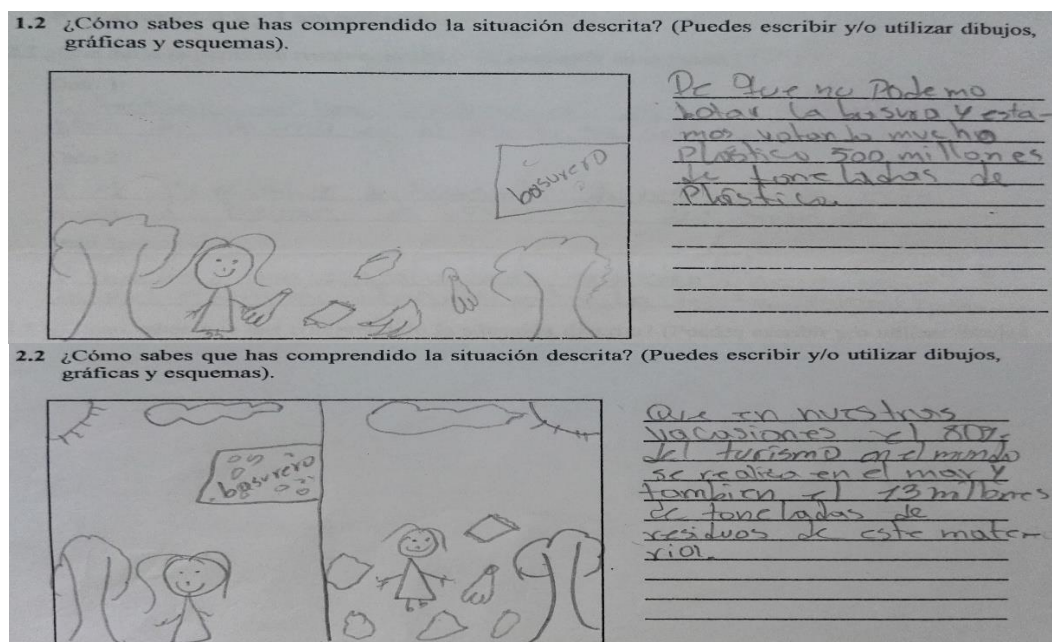 1.2 ¿Cómo sabes que has comprendido la situación descrita? (Puedes escribir y/o utilizar dibujos,
gráficas y esquemas).
De que no Podemo
botar la basura y esta-
mos votando mucho
Plástico 500 millones
de toneladas de
Plástico.
basurero
2.2 ¿Cómo sabes que has comprendido la situación descrita? (Puedes escribir y/o utilizar dibujos,
gráficas y esquemas).
Que en nuestras
vacasiones el 80%
del turismo en el mundo
se realisa en el mar y
tambien el 13 millones
de toneladas de
residuos de este mate-
rial.
basurero